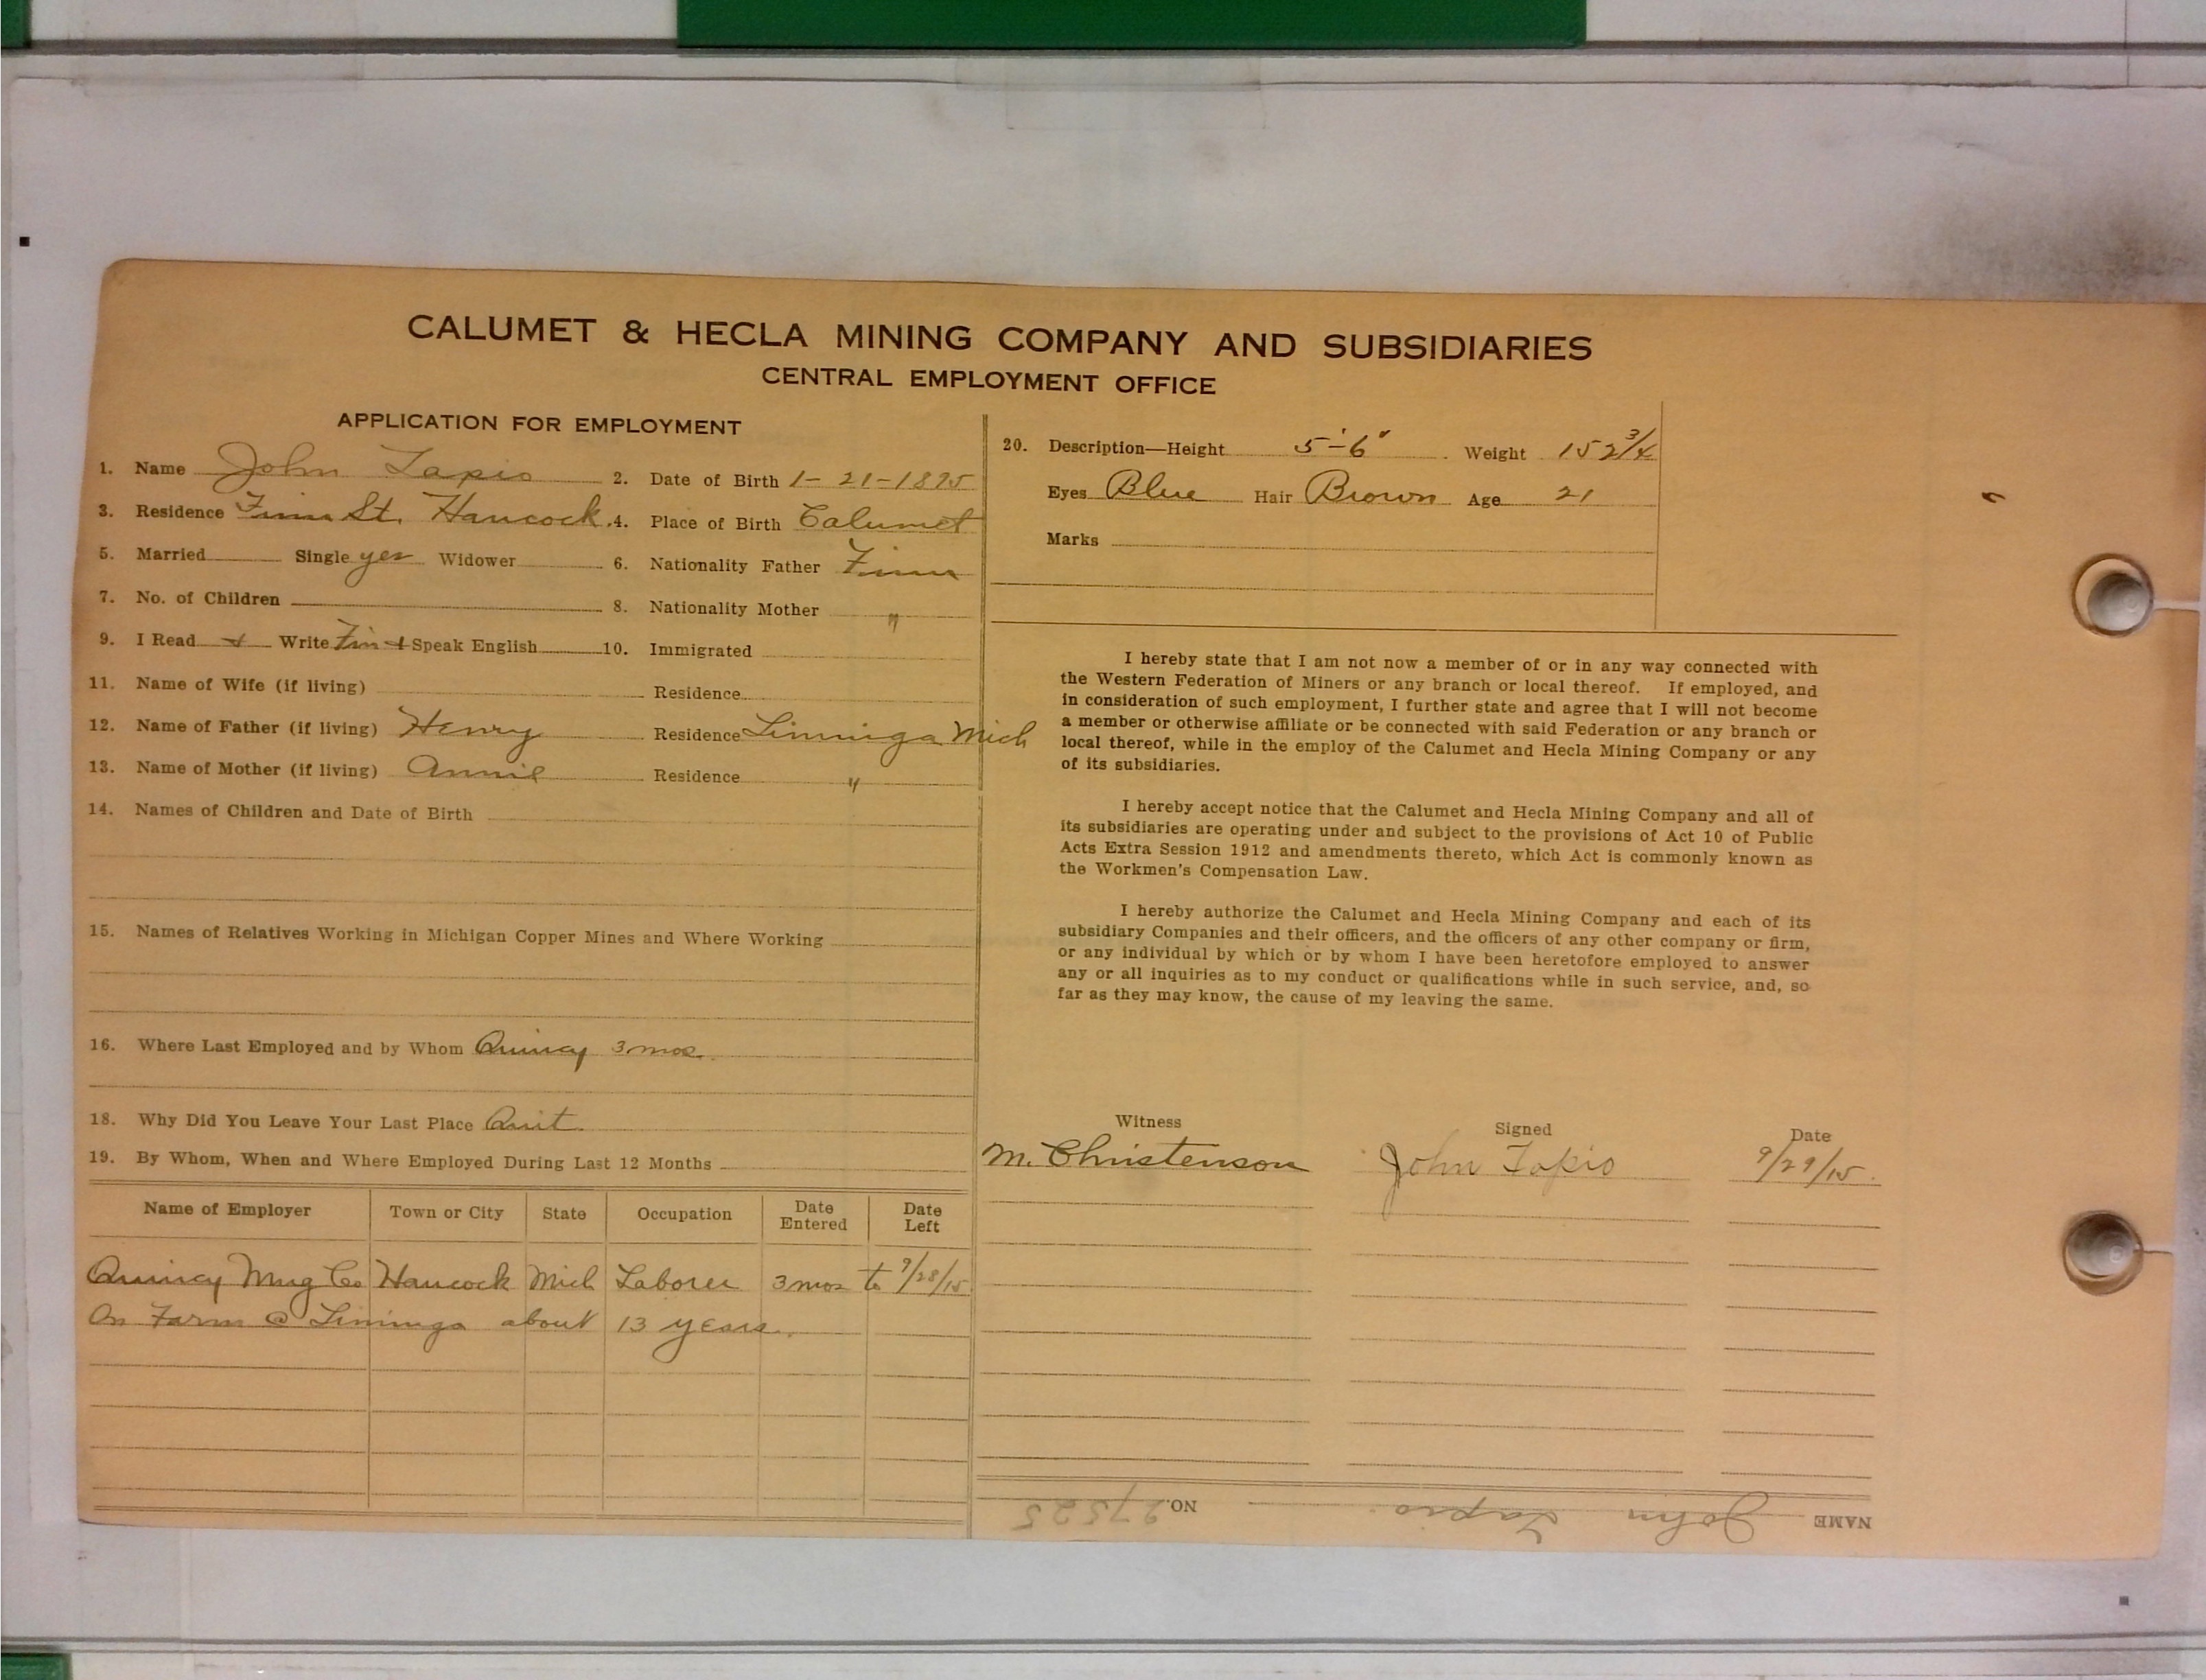 CALUMET & HECLA MINING COMPANY AND SUBSIDIARIES
CENTRAL EMPLOYMENT OFFICE
APPLICATION FOR EMPLOYMENT
1. Name John Tapio 2. Date of Birth 1-21-1895
3. Residence Finn St. Hancock. 4. Place of Birth Calumet
5. Married Single yes Widower 6. Nationality Father Finn
7. No. of Children 8. Nationality Mother "
9. I Read + Write Fin + Speak English 10. Immigrated
11. Name of Wife (if living) Residence
12. Name of Father (if living) Henry Residence Liminga Mich
13. Name of Mother (if living) Annie Residence "
14. Names of Children and Date of Birth
15. Names of Relatives Working in Michigan Copper Mines and Where Working
16. Where Last Employed and by Whom Quincy 3 mos.
18. Why Did You Leave Your Last Place Quit.
19. By Whom, When and Where Employed During Last 12 Months
Name of Employer Town or City State Occupation Date Entered Date Left
Quincy Mng Co Hancock Mich Laborer 3 mos to 9/28/15
On Farm @ Liminga about 13 years.
20. Description—Height 5'-6" Weight 152 3/4
Eyes Blue Hair Brown Age 21
Marks
I hereby state that I am not now a member of or in any way connected with
the Western Federation of Miners or any branch or local thereof. If employed, and
in consideration of such employment, I further state and agree that I will not become
a member or otherwise affiliate or be connected with said Federation or any branch or
local thereof, while in the employ of the Calumet and Hecla Mining Company or any
of its subsidiaries.
I hereby accept notice that the Calumet and Hecla Mining Company and all of
its subsidiaries are operating under and subject to the provisions of Act 10 of Public
Acts Extra Session 1912 and amendments thereto, which Act is commonly known as
the Workmen's Compensation Law.
I hereby authorize the Calumet and Hecla Mining Company and each of its
subsidiary Companies and their officers, and the officers of any other company or firm,
or any individual by which or by whom I have been heretofore employed to answer
any or all inquiries as to my conduct or qualifications while in such service, and, so
far as they may know, the cause of my leaving the same.
Witness Signed Date
M. Christenson John Tapio 9/29/15.
NAME John Tapio. NO. 27525